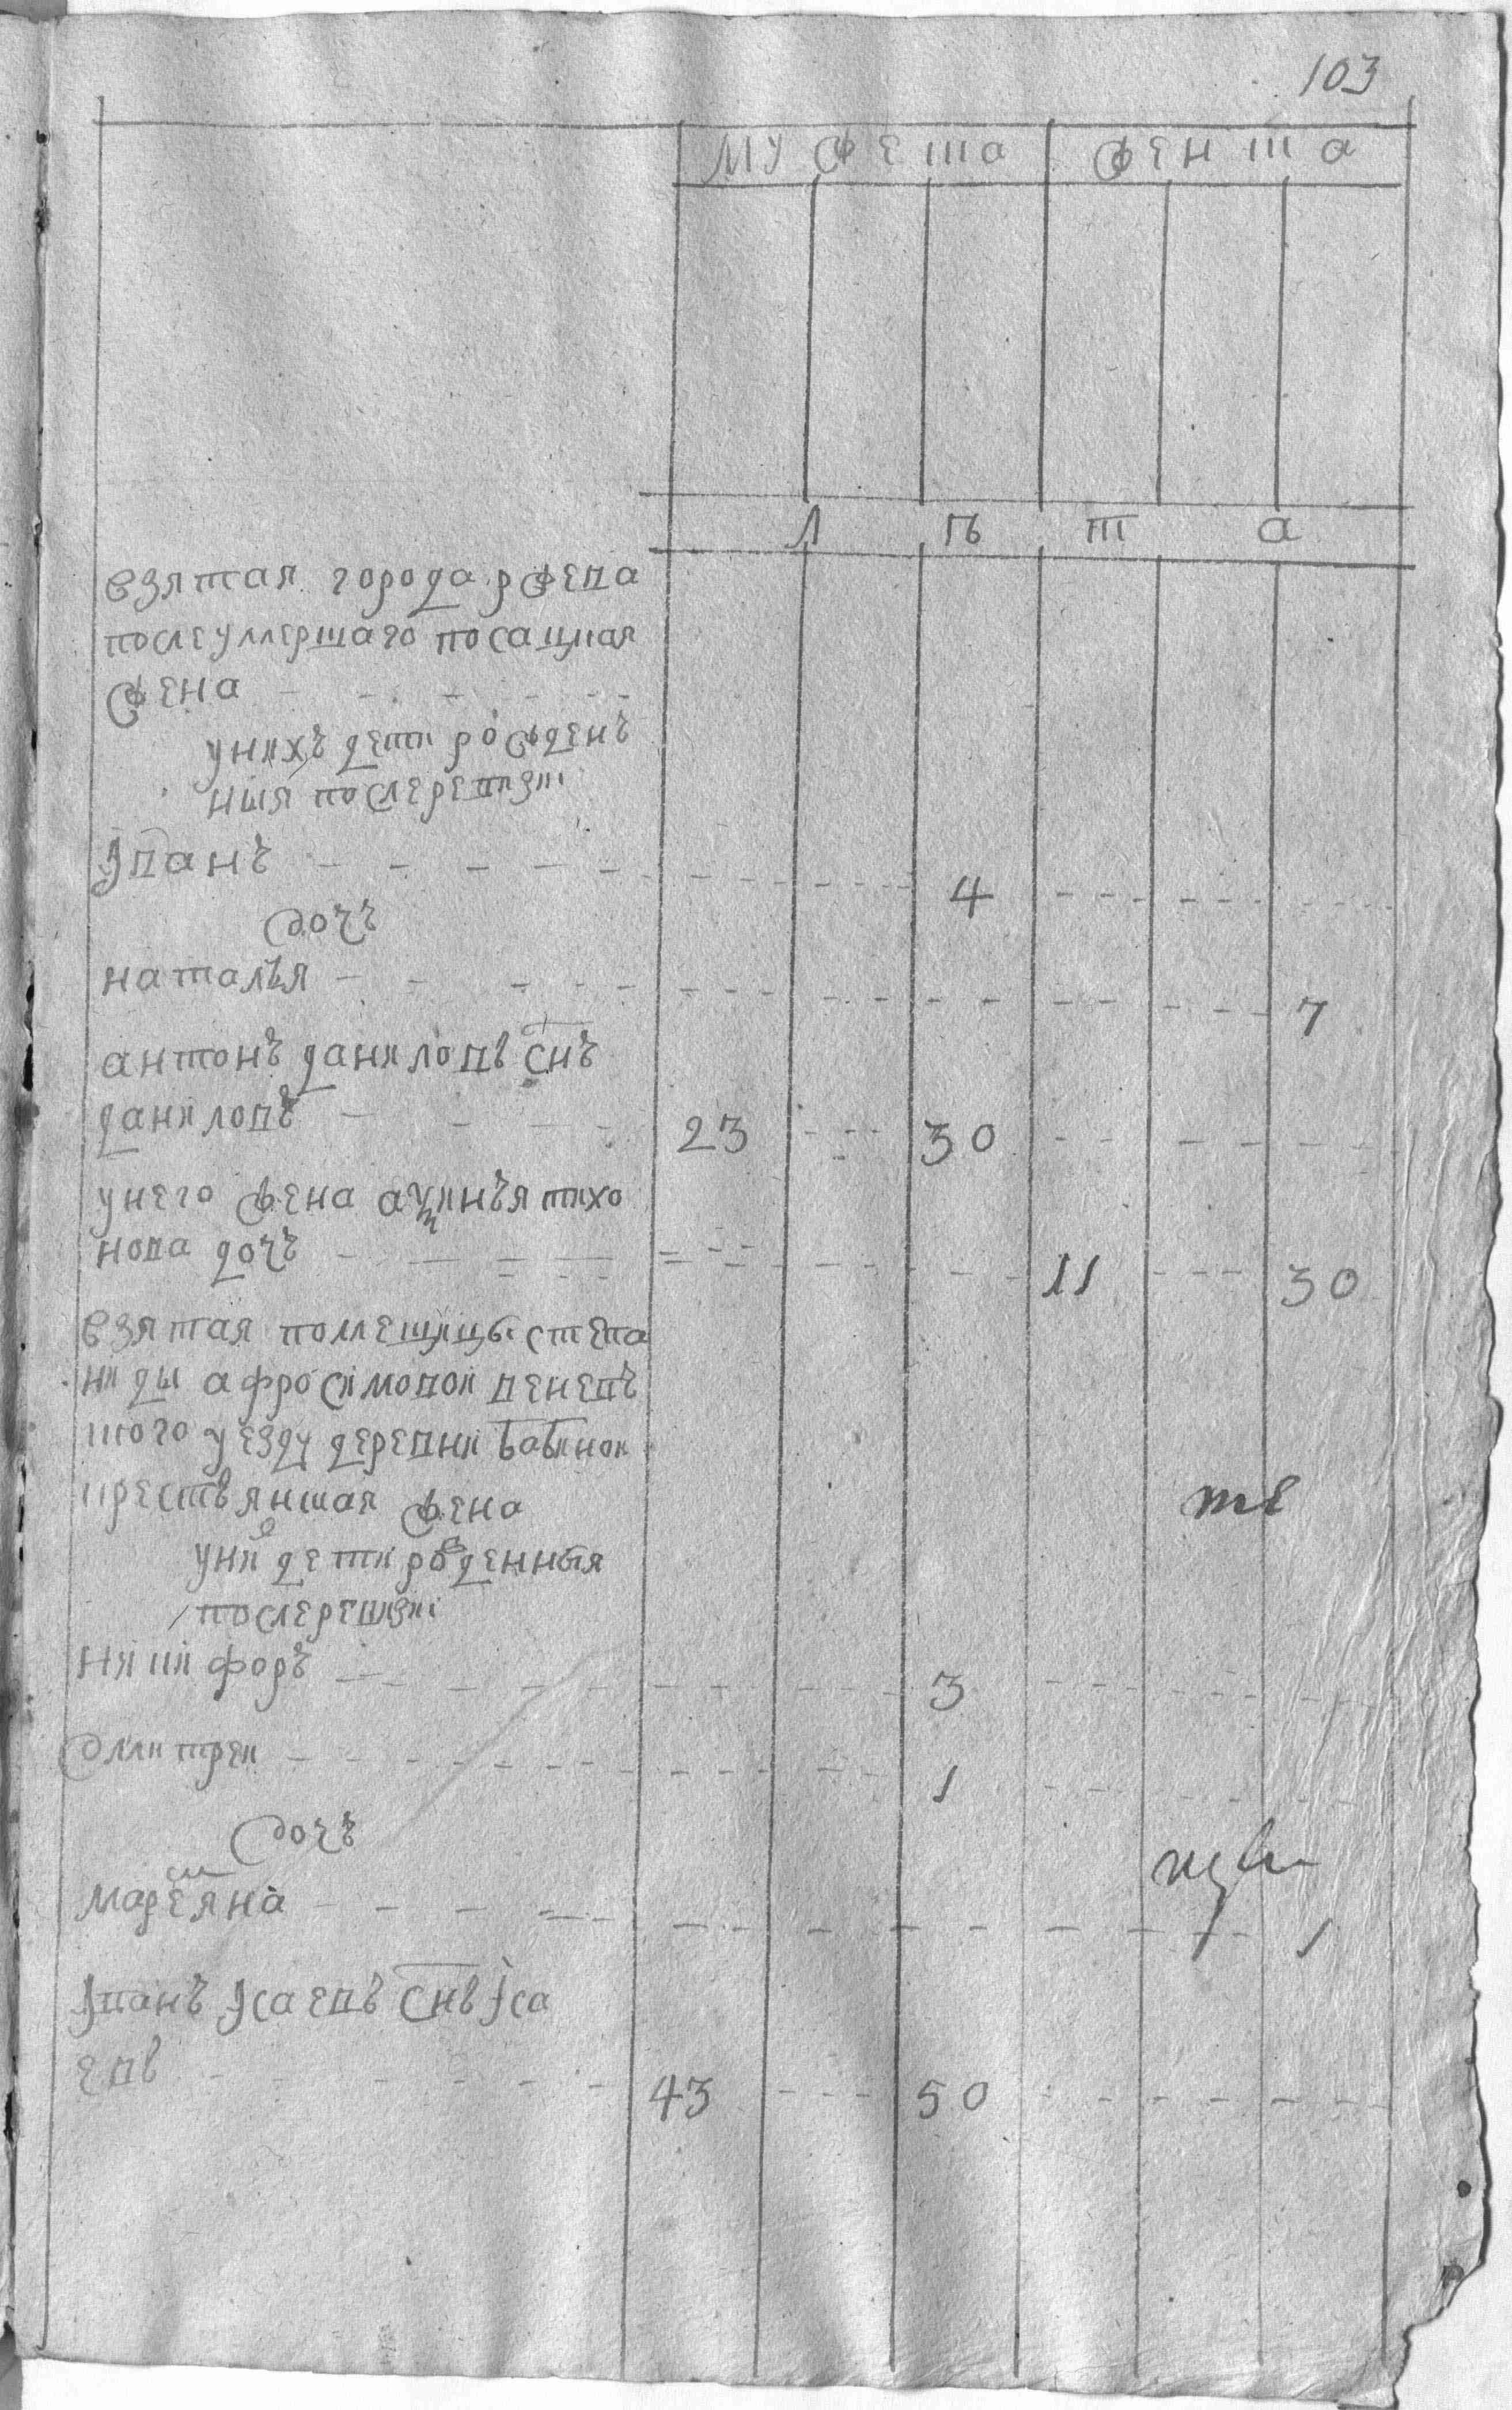 103
мужеска женска
л ѣ т а
взятая города ржева
послеумершаго посацкая
жена
унихъ дети рожденъ
ныя послеревизиі
Іванъ 4
дочь
наталья 7
антонъ даниловъ снъ
даниловъ 23 30
унего жена аксинья тихо
нова дочь 11 30
взятая помещицы степа
ниды афросимовой веневъ
ского уезду деревни бабинок
крестьянская жена
уних дети рожденныя
послеревизиі
никифоръ 3
дмитреи 1
дочь
маремяна 1
Іванъ Ісаевъ снъ Іса
евъ 43 50